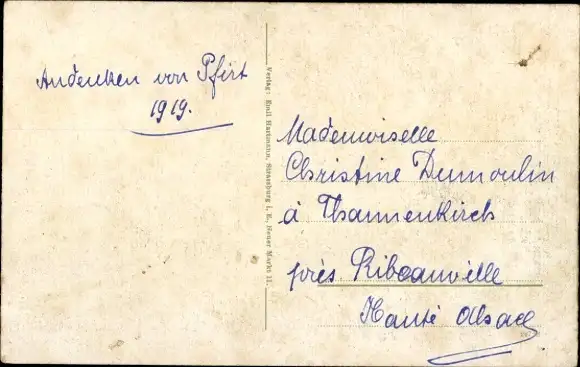 Andenken von Pfirt
1919.
Verlag: Emil Hartmann, Strassburg i. E., Neuer Markt 11.
Mademoiselle
Christine Dumoulin
à Thannenkirch
près Ribeauville
Haute Alsace